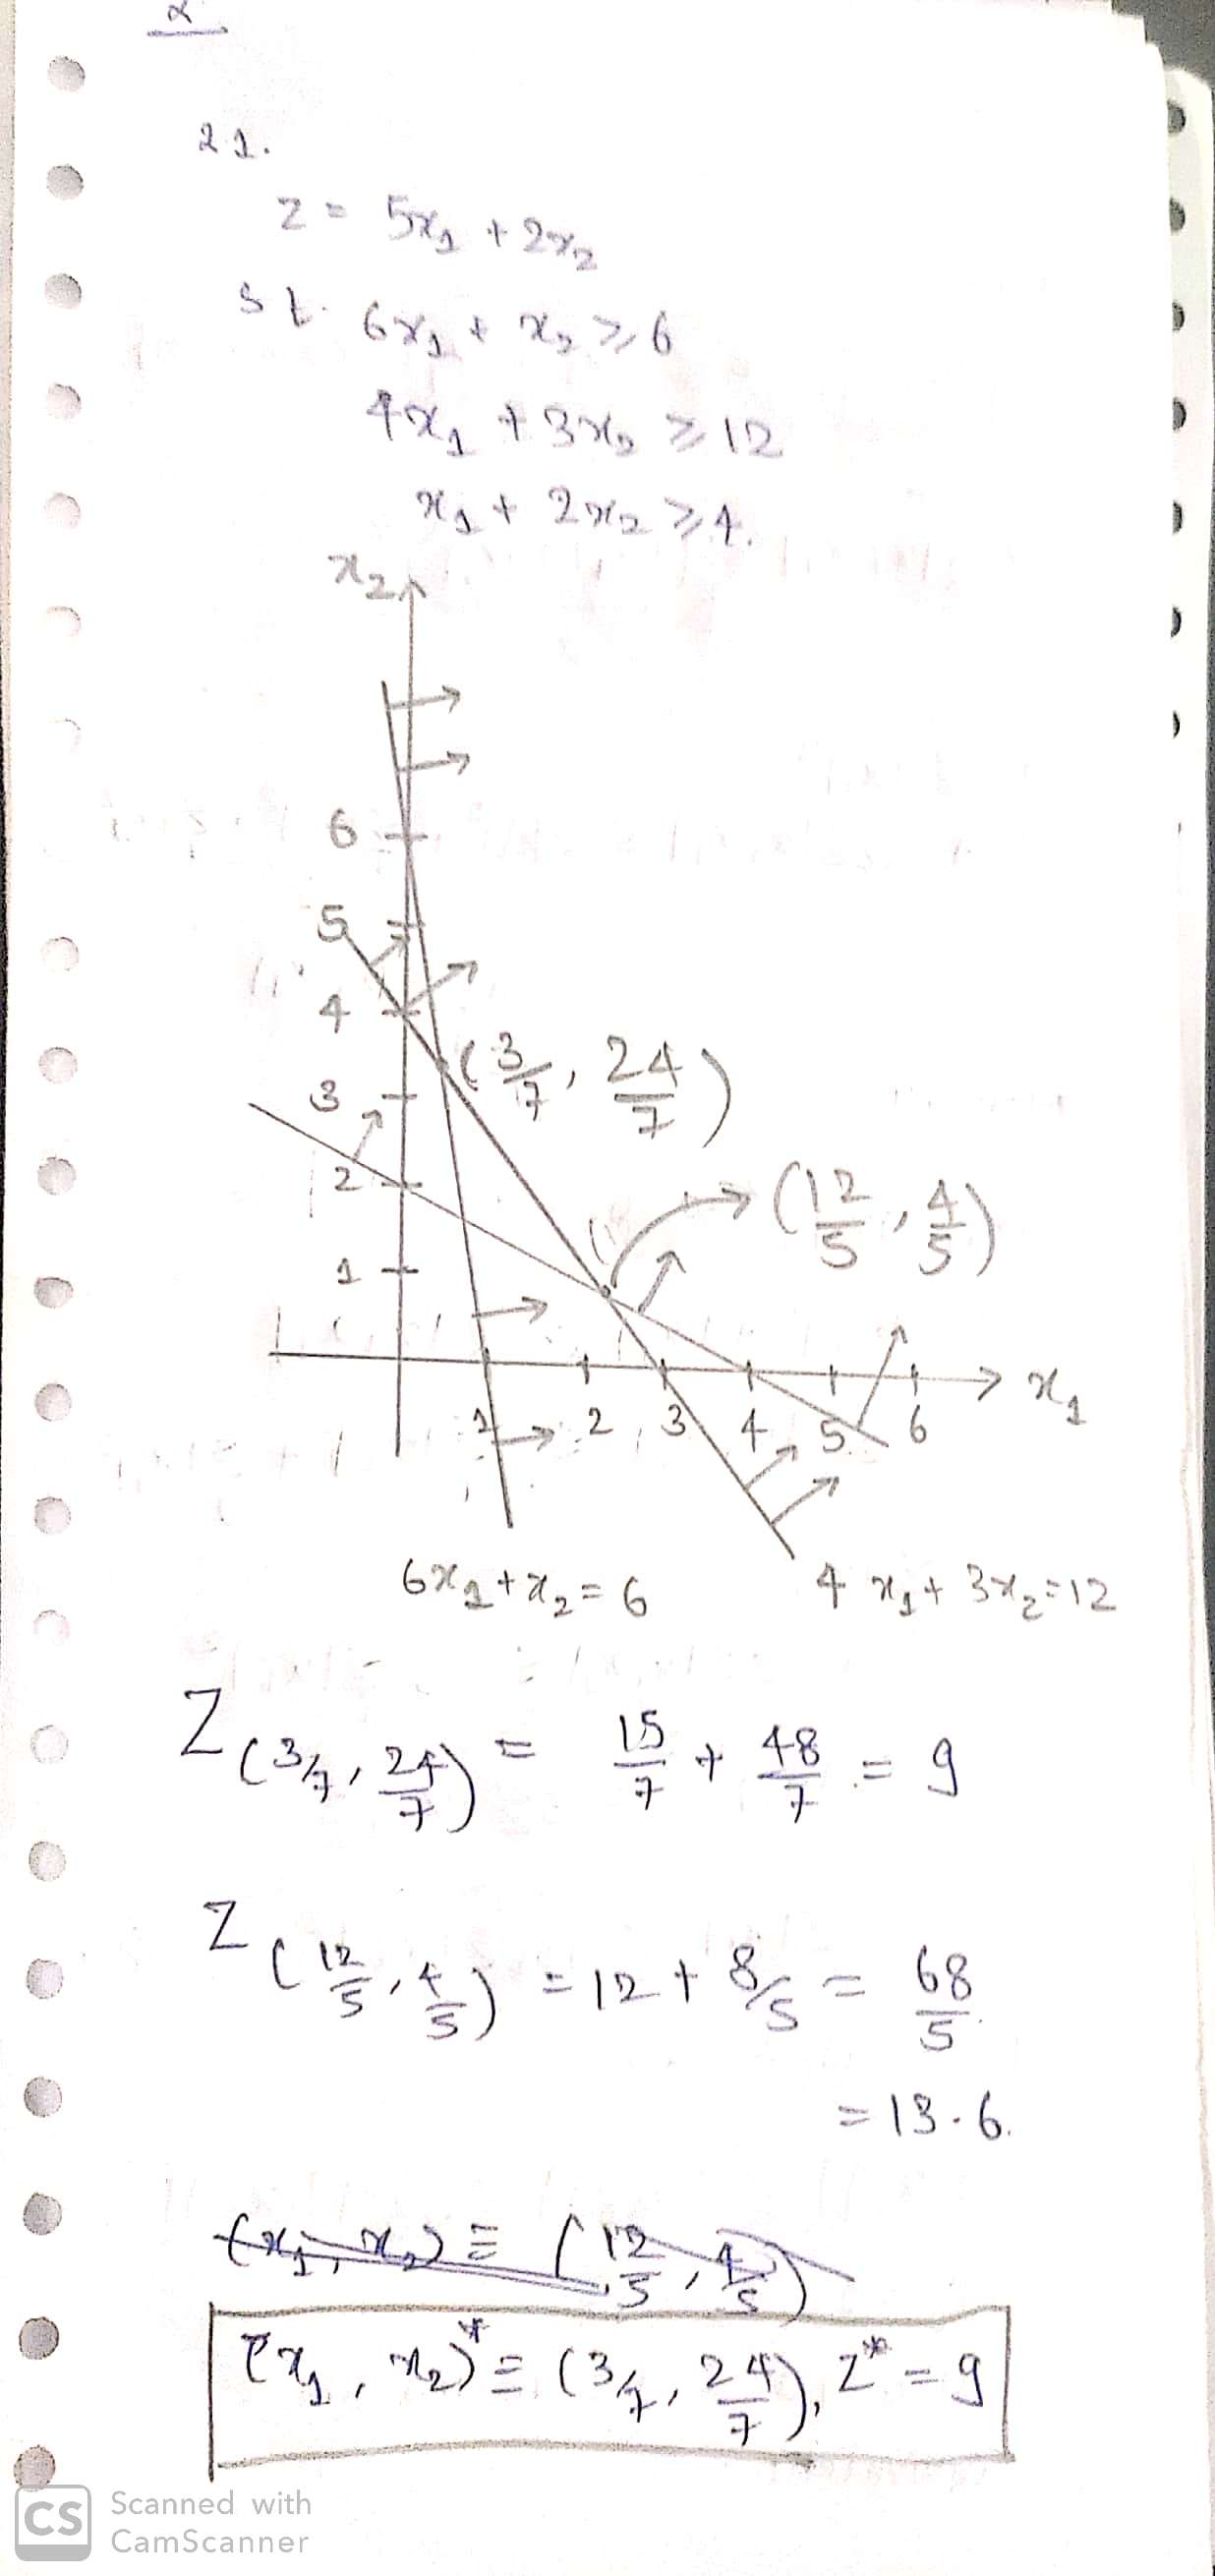 2
2.1.
Z = 5x₁ + 2x₂
s t. 6x₁ + x₂ ≥ 6
4x₁ + 3x₂ ≥ 12
x₁ + 2x₂ ≥ 4.
x₂
6
5
4
(3/7, 24/7)
3
2
(12/5, 4/5)
1
x₁
1 2 3 4 5 6
6x₁ + x₂ = 6
4x₁ + 3x₂ = 12
Z(3/7, 24/7) = 15/7 + 48/7 = 9
Z(12/5, 4/5) = 12 + 8/5 = 68/5
= 13.6.
(x₁, x₂) ≡ (12/5, 4/5)
(x₁, x₂)* ≡ (3/7, 24/7), Z* = 9
CS Scanned with
CamScanner